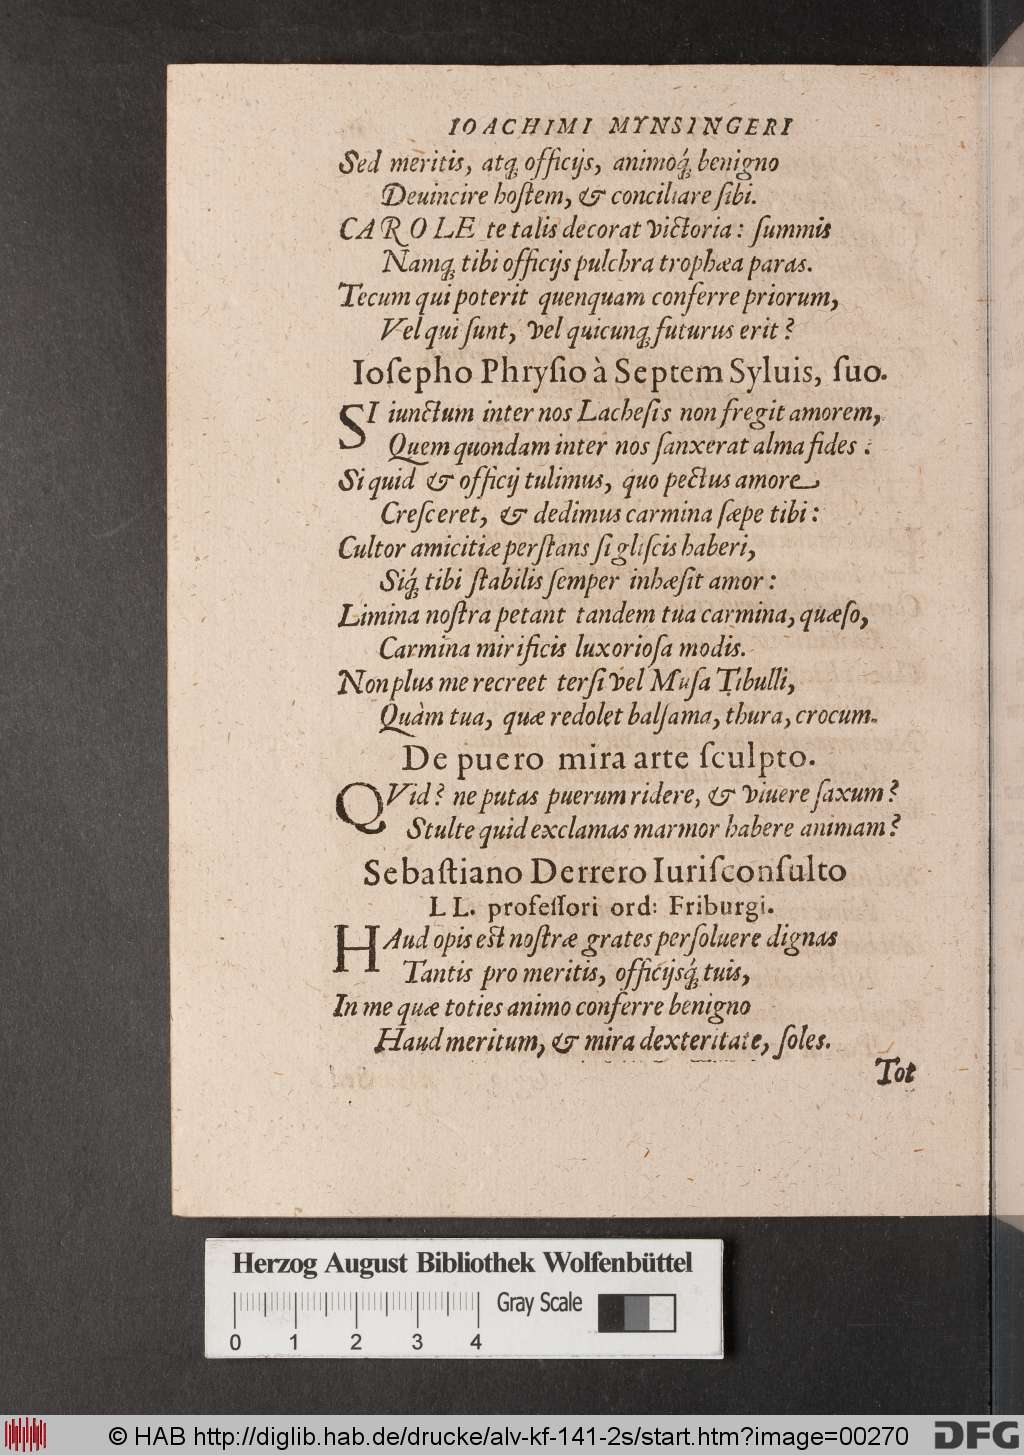 IOACHIMI MYNSINGERI
Sed meritis, atq́ officijs, animoq́ benigno
Deuincire hoſtem, & conciliare ſibi.
CAROLE te talis decorat victoria: ſummis
Namq́ tibi officijs pulchra trophæa paras.
Tecum qui poterit quenquam conferre priorum,
Vel qui ſunt, vel quicunq́ futurus erit?
Ioſepho Phryſio à Septem Syluis, ſuo.
SI iunctum inter nos Lacheſis non fregit amorem,
Quem quondam inter nos ſanxerat alma fides:
Si quid & officij tulimus, quo pectus amore
Creſceret, & dedimus carmina ſæpe tibi:
Cultor amicitiæ perſtans ſi gliſcis haberi,
Siq́ tibi ſtabilis ſemper inhæſit amor:
Limina noſtra petant tandem tua carmina, quæſo,
Carmina mirificis luxorioſa modis.
Non plus me recreet terſi vel Muſa Tibulli,
Quàm tua, quæ redolet balſama, thura, crocum.
De puero mira arte ſculpto.
QVid? ne putas puerum ridere, & viuere ſaxum?
Stulte quid exclamas marmor habere animam?
Sebaſtiano Derrero Iuriſconſulto
LL. profeſſori ord: Friburgi.
HAud opis est noſtræ grates perſoluere dignas
Tantis pro meritis, officijsq́ tuis,
In me quæ toties animo conferre benigno
Haud meritum, & mira dexteritate, ſoles.
Tot
Herzog August Bibliothek Wolfenbüttel
Gray Scale
0 1 2 3 4
© HAB http://diglib.hab.de/drucke/alv-kf-141-2s/start.htm?image=00270
DFG